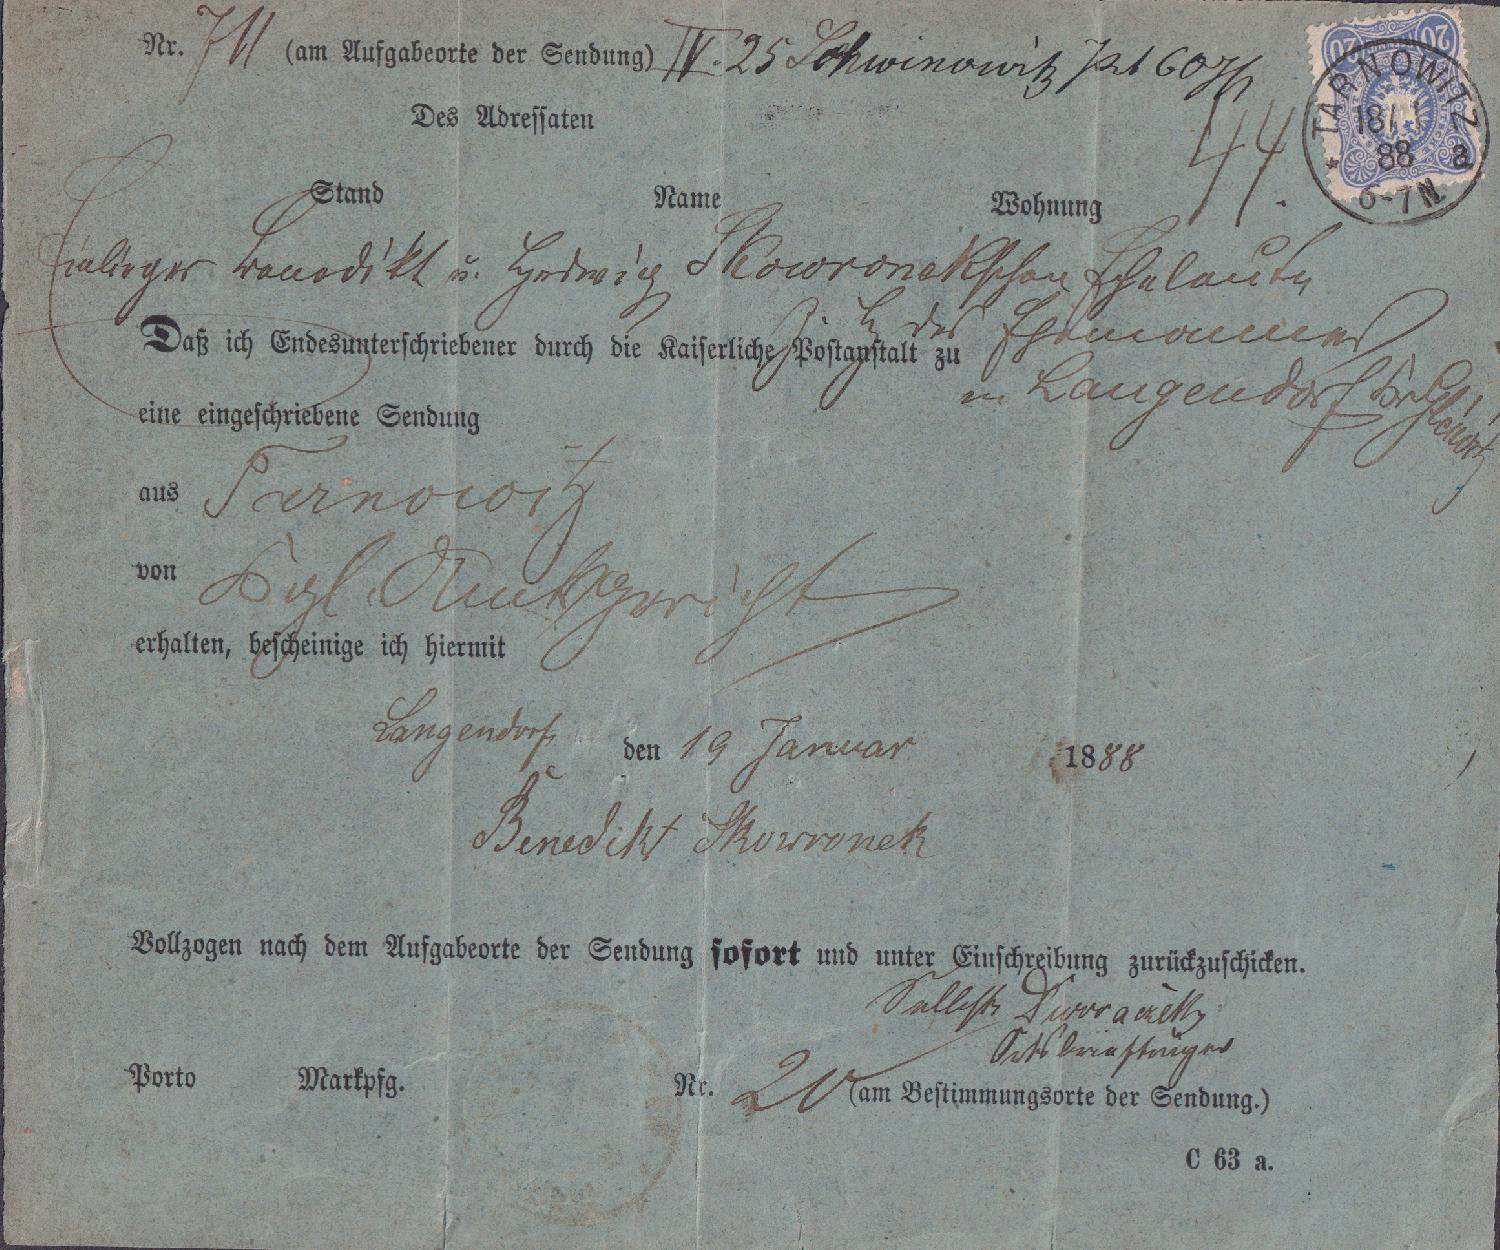 Nr. 711 (am Aufgabeorte der Sendung) IV. 25 Schwinowitz
44.
TARNOWITZ
18/1
88 a
6-7N
20 20
Des Adressaten
Stand Name Wohnung
Einlieger Benedikt u. Hedwig Skowronekschen Eheleute
z. H. des Ehemannes
Daß ich Endesunterschriebener durch die Kaiserliche Postanstalt zu
in Langendorf
eine eingeschriebene Sendung
aus Tarnowitz
von Kgl. Amtsgericht
erhalten, bescheinige ich hiermit
Langendorf den 19 Januar 1888
Benedikt Skowronek
Vollzogen nach dem Aufgabeorte der Sendung sofort und unter Einschreibung zurückzuschicken.
Porto Markpfg. Nr. 20 (am Bestimmungsorte der Sendung.)
C 63 a.